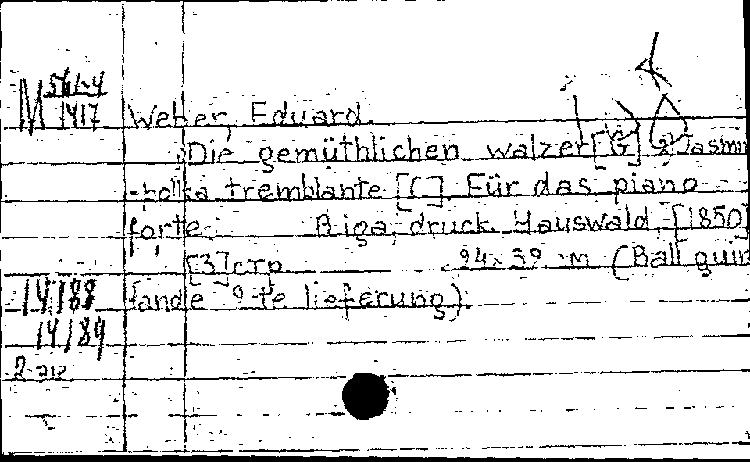 M 1417
Weber, Eduard.
Die gemüthlichen walzer [G] 2 Jasmin
-polka tremblante [C]. Für das piano-
forte. Riga, druck. Hauswald, [1850]
[3] стр. 24x39 см (Ball guir
14/88 lande 2-te lieferung).
14/89